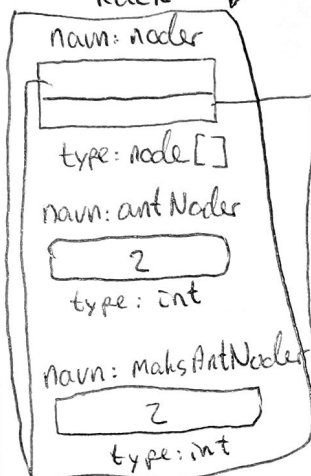 navn: noder
type: node[]
navn: antNoder
2
type: int
navn: maksAntNoder
2
type: int